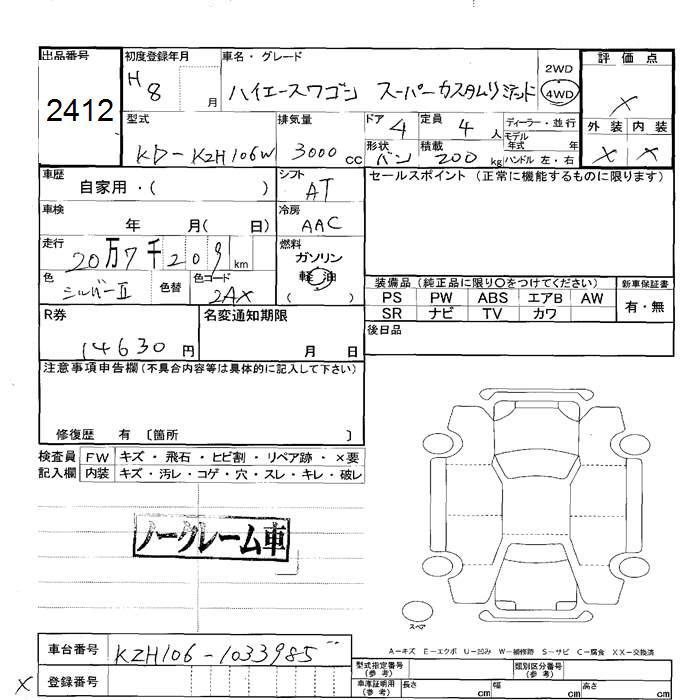 出品番号 初度登録年月 車名・グレード 評価点
2412 H8 月 ハイエースワゴン スーパーカスタムリミテッド 2WD 4WD X
型式 排気量 ドア 4 定員 4 人 ディーラー・並行 外装 内装
モデル年式 年
KD-KZH106W 3000 cc 形状 バン 積載 200 kg ハンドル 左・右 X X
車歴 自家用・( ) シフト AT セールスポイント (正常に機能するものに限ります)
車検 年 月( 日) 冷房 AAC
走行 20万7千209 km 燃料 ガソリン
軽油
色 シルバーII 色替 色コード 2AX ( )
装備品 (純正品に限り○をつけてください) 新車保証書
PS PW ABS エアB AW 有・無
SR ナビ TV カワ
R券 14630 円 名変通知期限 月 日 後日品
注意事項申告欄 (不具合内容等は具体的に記入して下さい)
修復歴 有 〔箇所 〕
検査員 FW キズ・飛石・ヒビ割・リペア跡・×要
記入欄 内装 キズ・汚レ・コゲ・穴・スレ・キレ・破レ
ノークレーム車
スペア
A-キズ E-エクボ U-凹み W-補修跡 S-サビ C-腐食 XX-交換済
車台番号 KZH106-1033985
型式指定番号 (参考) 類別区分番号 (参考)
X 登録番号
車庫証明用 (参考) 長さ cm 幅 cm 高さ cm